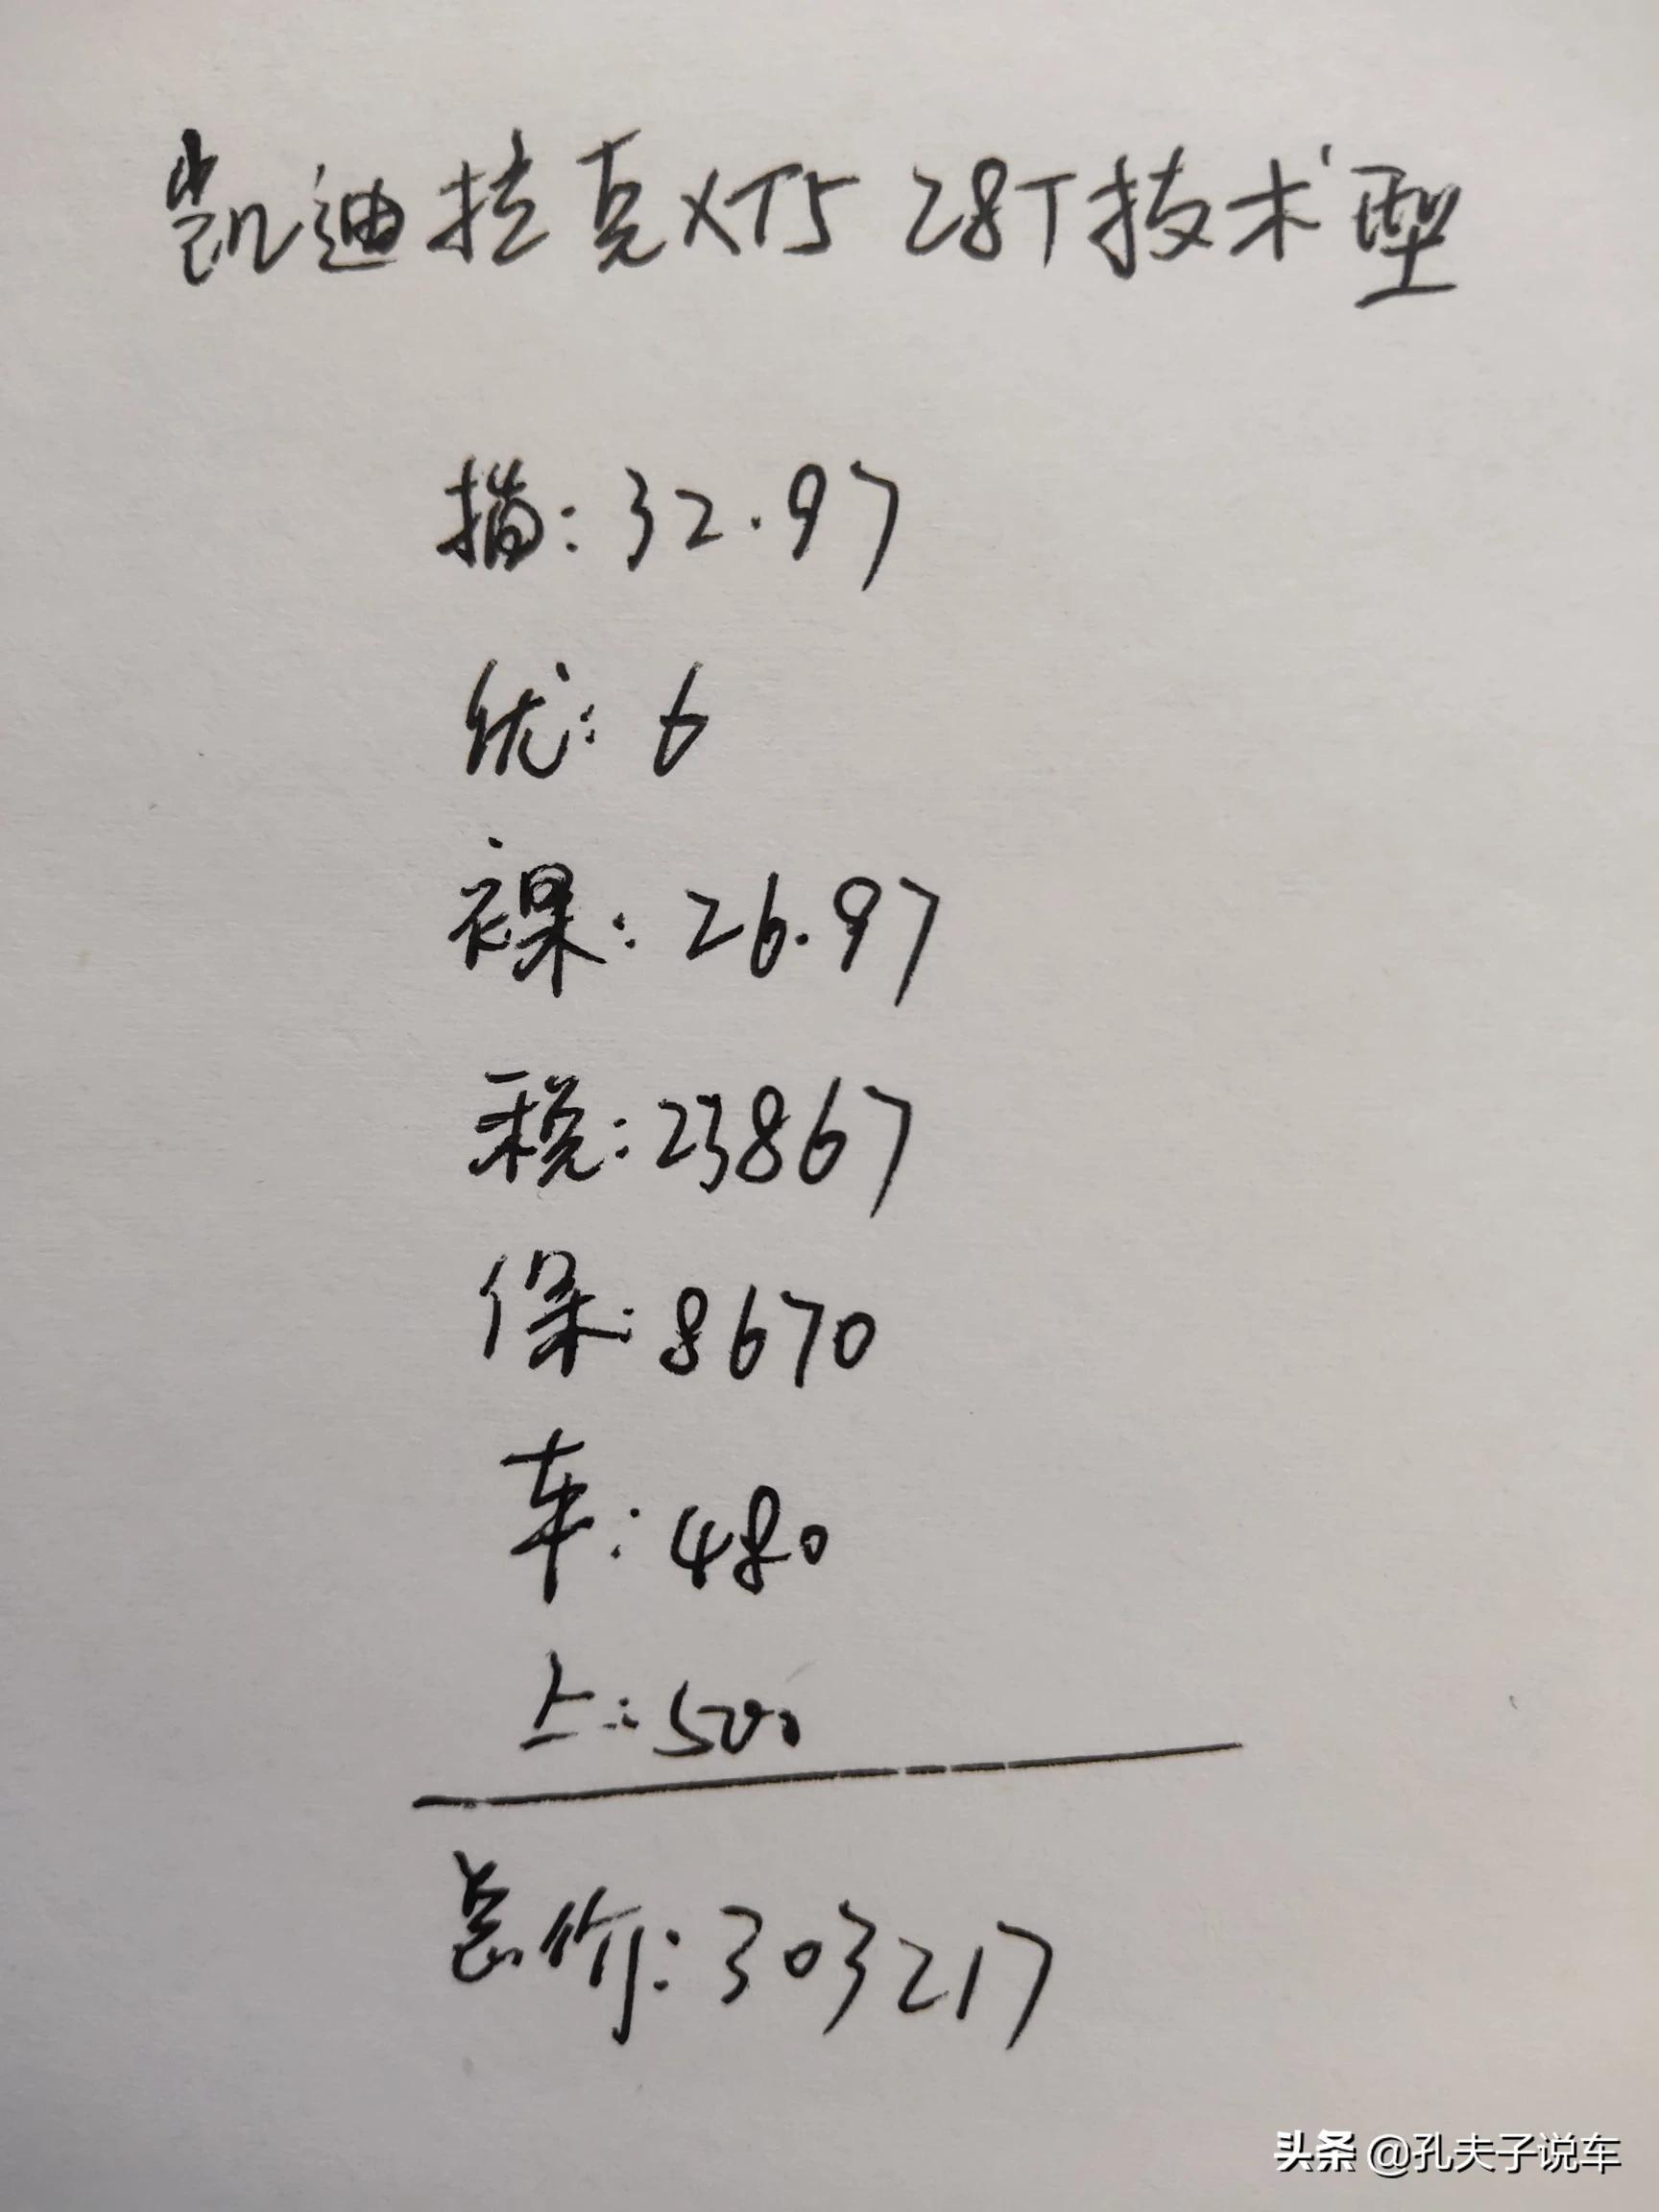 凯迪拉克XT5 28T技术型
指: 32.97
优: 6
裸: 26.97
税: 23867
保: 8670
车: 480
上: 500
总价: 303217
头条 @孔夫子说车